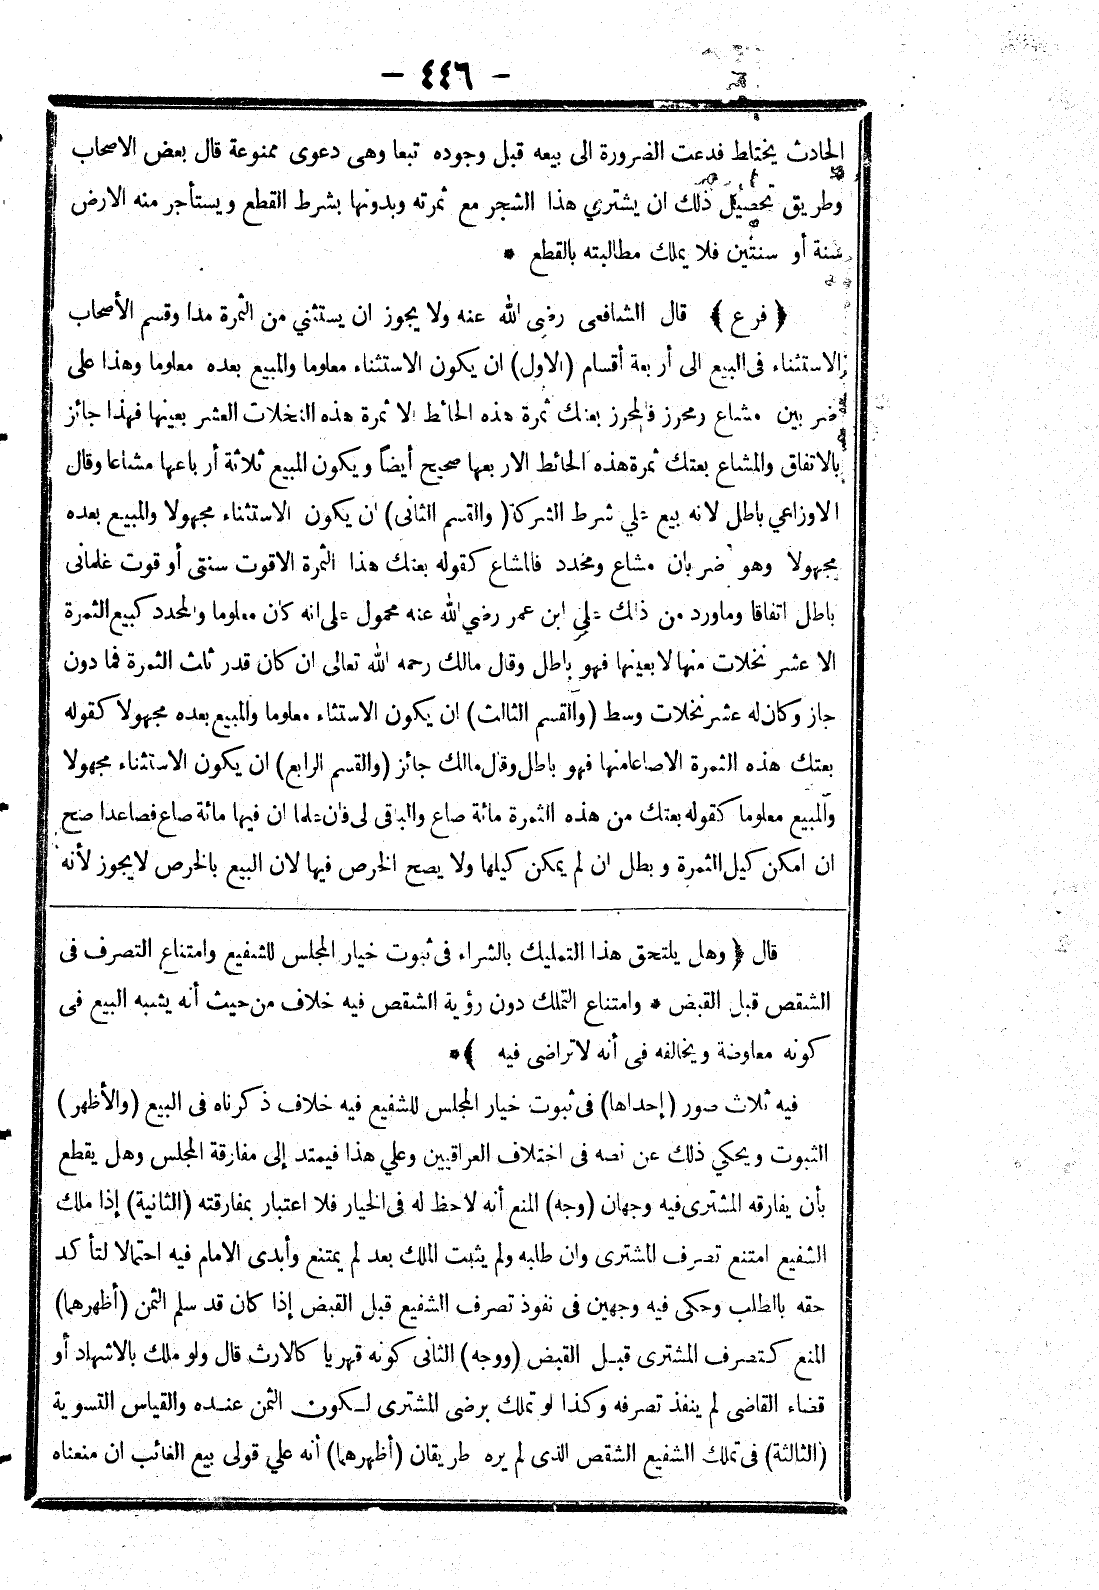 - ٤٤٦ -
الحادث يختاط فدعت الضرورة الى بيعه قبل وجوده تبعا وهى دعوى ممنوعة قال بعض الاصحاب
وطريق تحصيل ذلك ان يشتري هذا الشجر مع ثمرته وبدونها بشرط القطع ويستأجر منه الارض
سنة أو سنتين فلا يملك مطالبته بالقطع *
﴿ فرع ﴾ قال الشافعى رضى الله عنه ولا يجوز ان يستثني من الثمرة مدا وقسم الأصحاب
الاستثناء فى البيع الى أربعة أقسام (الاول) ان يكون الاستثناء معلوما والمبيع بعده معلوما وهذا على
ضربين مشاع ومحرز فالمحرز بعتك ثمرة هذه الحائط الا ثمرة هذه النخلات العشر بعينها فهذا جائز
بالاتفاق والمشاع بعتك ثمرة هذه الحائط الا ربعها صحيح أيضاً ويكون المبيع ثلاثة أرباعها مشاعا وقال
الاوزاعي باطل لانه بيع علي شرط الشركة (والقسم الثانى) ان يكون الاستثناء مجهولا والمبيع بعده
مجهولا وهو ضربان مشاع ومحدد فالمشاع كقوله بعتك هذا الثمرة الاقوت سنتى أو قوت غلمانى
باطل اتفاقا وماورد من ذلك علي ابن عمر رضي الله عنه محمول على انه كان معلوما والمحدد كبيع الثمرة
الا عشر نخلات منها لابعينها فهو باطل وقال مالك رحمه الله تعالى ان كان قدر ثلث الثمرة فما دون
جاز وكان له عشر نخلات وسط (والقسم الثالث) ان يكون الاستثناء معلوما والمبيع بعده مجهولا كقوله
بعتك هذه الثمرة الاصاعامنها فهو باطل وقال مالك جائز (والقسم الرابع) ان يكون الاستثناء مجهولا
والمبيع معلوما كقوله بعتك من هذه الثمرة مائة صاع والباقى لى فان علما ان فيها مائة صاع فصاعدا صح
ان امكن كيل الثمرة وبطل ان لم يمكن كيلها ولا يصح الخرص فيها لان البيع بالخرص لايجوز لأنه
قال ﴿ وهل يلتحق هذا التمليك بالشراء فى ثبوت خيار المجلس للشفيع وامتناع التصرف فى
الشقص قبل القبض * وامتناع التملك دون رؤية الشقص فيه خلاف من حيث أنه يشبه البيع فى
كونه معاوضة ويخالفه فى أنه لاتراضى فيه ﴾*
فيه ثلاث صور (إحداها) فى ثبوت خيار المجلس للشفيع فيه خلاف ذكرناه فى البيع (والأظهر)
الثبوت ويحكي ذلك عن نصه فى اختلاف العراقيين وعلي هذا فيمتد إلى مفارقة المجلس وهل يقطع
بأن يفارقه المشترى فيه وجهان (وجه) المنع أنه لاحظ له فى الخيار فلا اعتبار بمفارقته (الثانية) إذا ملك
الشفيع امتنع تصرف المشترى وان طلبه ولم يثبت الملك بعد لم يمتنع وأبدى الامام فيه احتمالا لتأكد
حقه بالطلب وحكى فيه وجهين فى نفوذ تصرف الشفيع قبل القبض إذا كان قد سلم الثمن (أظهرهما)
المنع كتصرف المشترى قبل القبض (ووجه) الثانى كونه قهريا كالارث قال ولو ملك بالاشهاد أو
قضاء القاضى لم ينفذ تصرفه وكذا لو تملك برضى المشترى لكون الثمن عنده والقياس التسوية
(الثالثة) فى تملك الشفيع الشقص الذى لم يره طريقان (أظهرهما) أنه علي قولى بيع الغائب ان منعناه